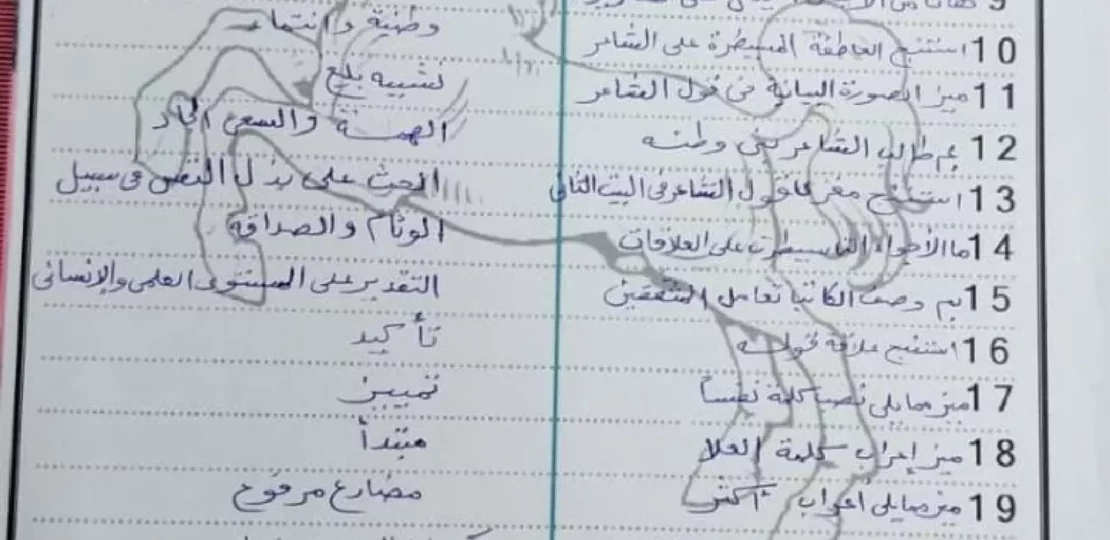 10 استنتج العاطفة المسيطرة على الشاعر وطنية وانتماء
11 ميز الصورة البيانية في قول الشاعر تشبيه بليغ
12 بم طالب الشاعر بني وطنه الهمة والسعي الجاد
13 استنتج مغزى قول الشاعر في البيت الثاني الحث على بذل النفس في سبيل
14 ما الأجواء التي سيطرت على العلاقات الوئام والصداقة
15 بم وصف الكاتب تعامل المثقفين التقدير على المستوى العلمي والإنساني
16 استنتج علاقة قوله تأكيد
17 ميز مما يلي نصب كلمة نفساً تمييز
18 ميز إعراب كلمة العلا مبتدأ
19 ميز مما يلي اعراب مضارع مرفوع